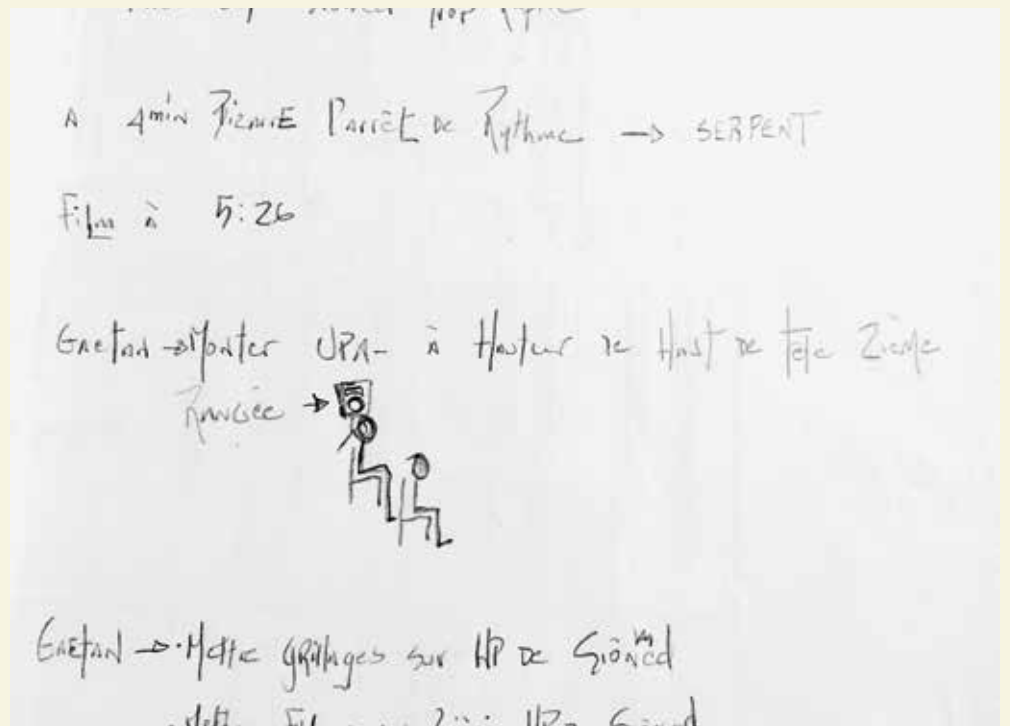 A 4min Bizarre l'arrêt de Rythme → SERPENT
Film à 5:26
Gaetan → Monter UPA- à Hauteur de Haut de tête 2ième
Rangée →
Gaetan → • Mettre Grillages sur HP de